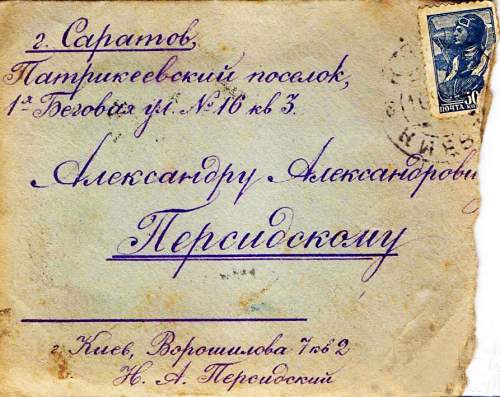 г. Саратов,
Патрикеевский поселок,
1я Беговая ул. № 16 кв 3.
Александру Александрови
Персидскому
г. Киев, Ворошилова 7 кв 2
Н. А. Персидский
ПОЧТА
30
КИЕВ